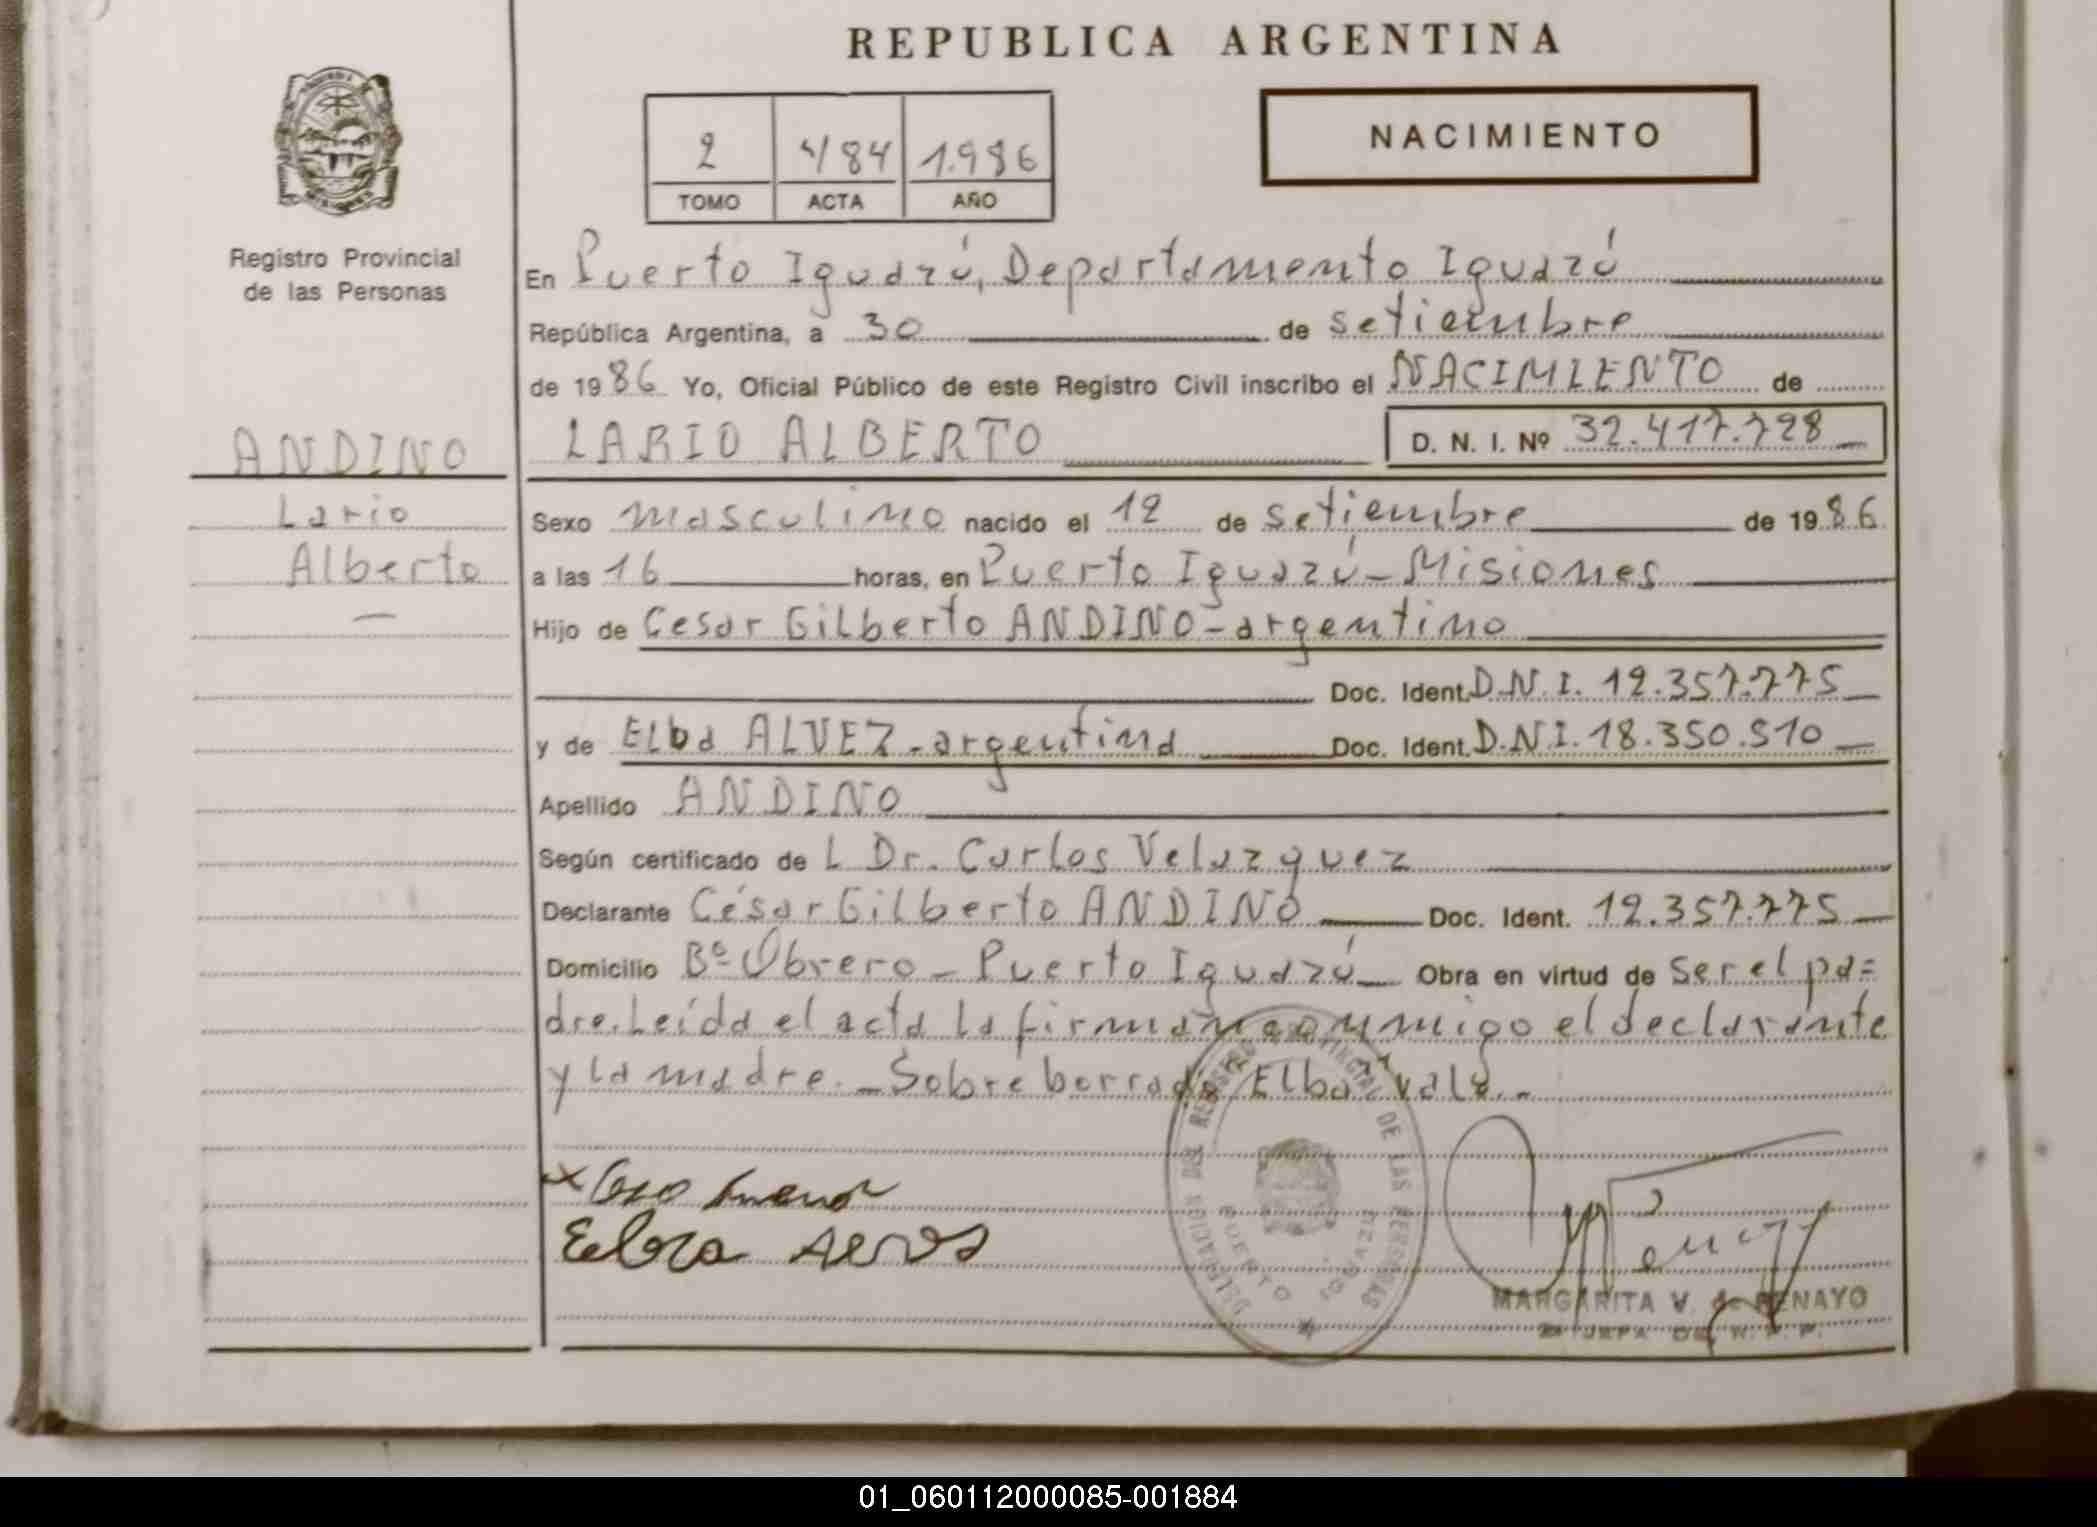 REPUBLICA ARGENTINA
NACIMIENTO
2 484 1.986
TOMO ACTA AÑO
Registro Provincial
de las Personas
En Puerto Iguazú, Departamento Iguazú
República Argentina, a 30 de setiembre
de 1986 Yo, Oficial Público de este Registro Civil inscribo el NACIMIENTO de
ANDINO
Lario
Alberto
—
LARIO ALBERTO D. N. I. Nº 32.417.728
Sexo masculino nacido el 12 de setiembre de 1986
a las 16 horas, en Puerto Iguazú - Misiones
Hijo de Cesar Gilberto ANDINO - argentino
Doc. Ident. D.N.I. 12.357.775
y de Elba ALVEZ - argentina Doc. Ident. D.N.I. 18.350.510
Apellido ANDINO
Según certificado de L Dr. Carlos Velazquez
Declarante César Gilberto ANDINO Doc. Ident. 12.357.775
Domicilio Bº Obrero - Puerto Iguazú Obra en virtud de ser el pa=
dre. Leída el acta la firman conmigo el declarante
y la madre. - Sobre borrado "Elba" vale. -
DELEGACION DEL REGISTRO PROVINCIAL DE LAS PERSONAS
PUERTO IGUAZU
MARGARITA V. de PENAYO
JEFA DE R. P. P.
01_060112000085-001884